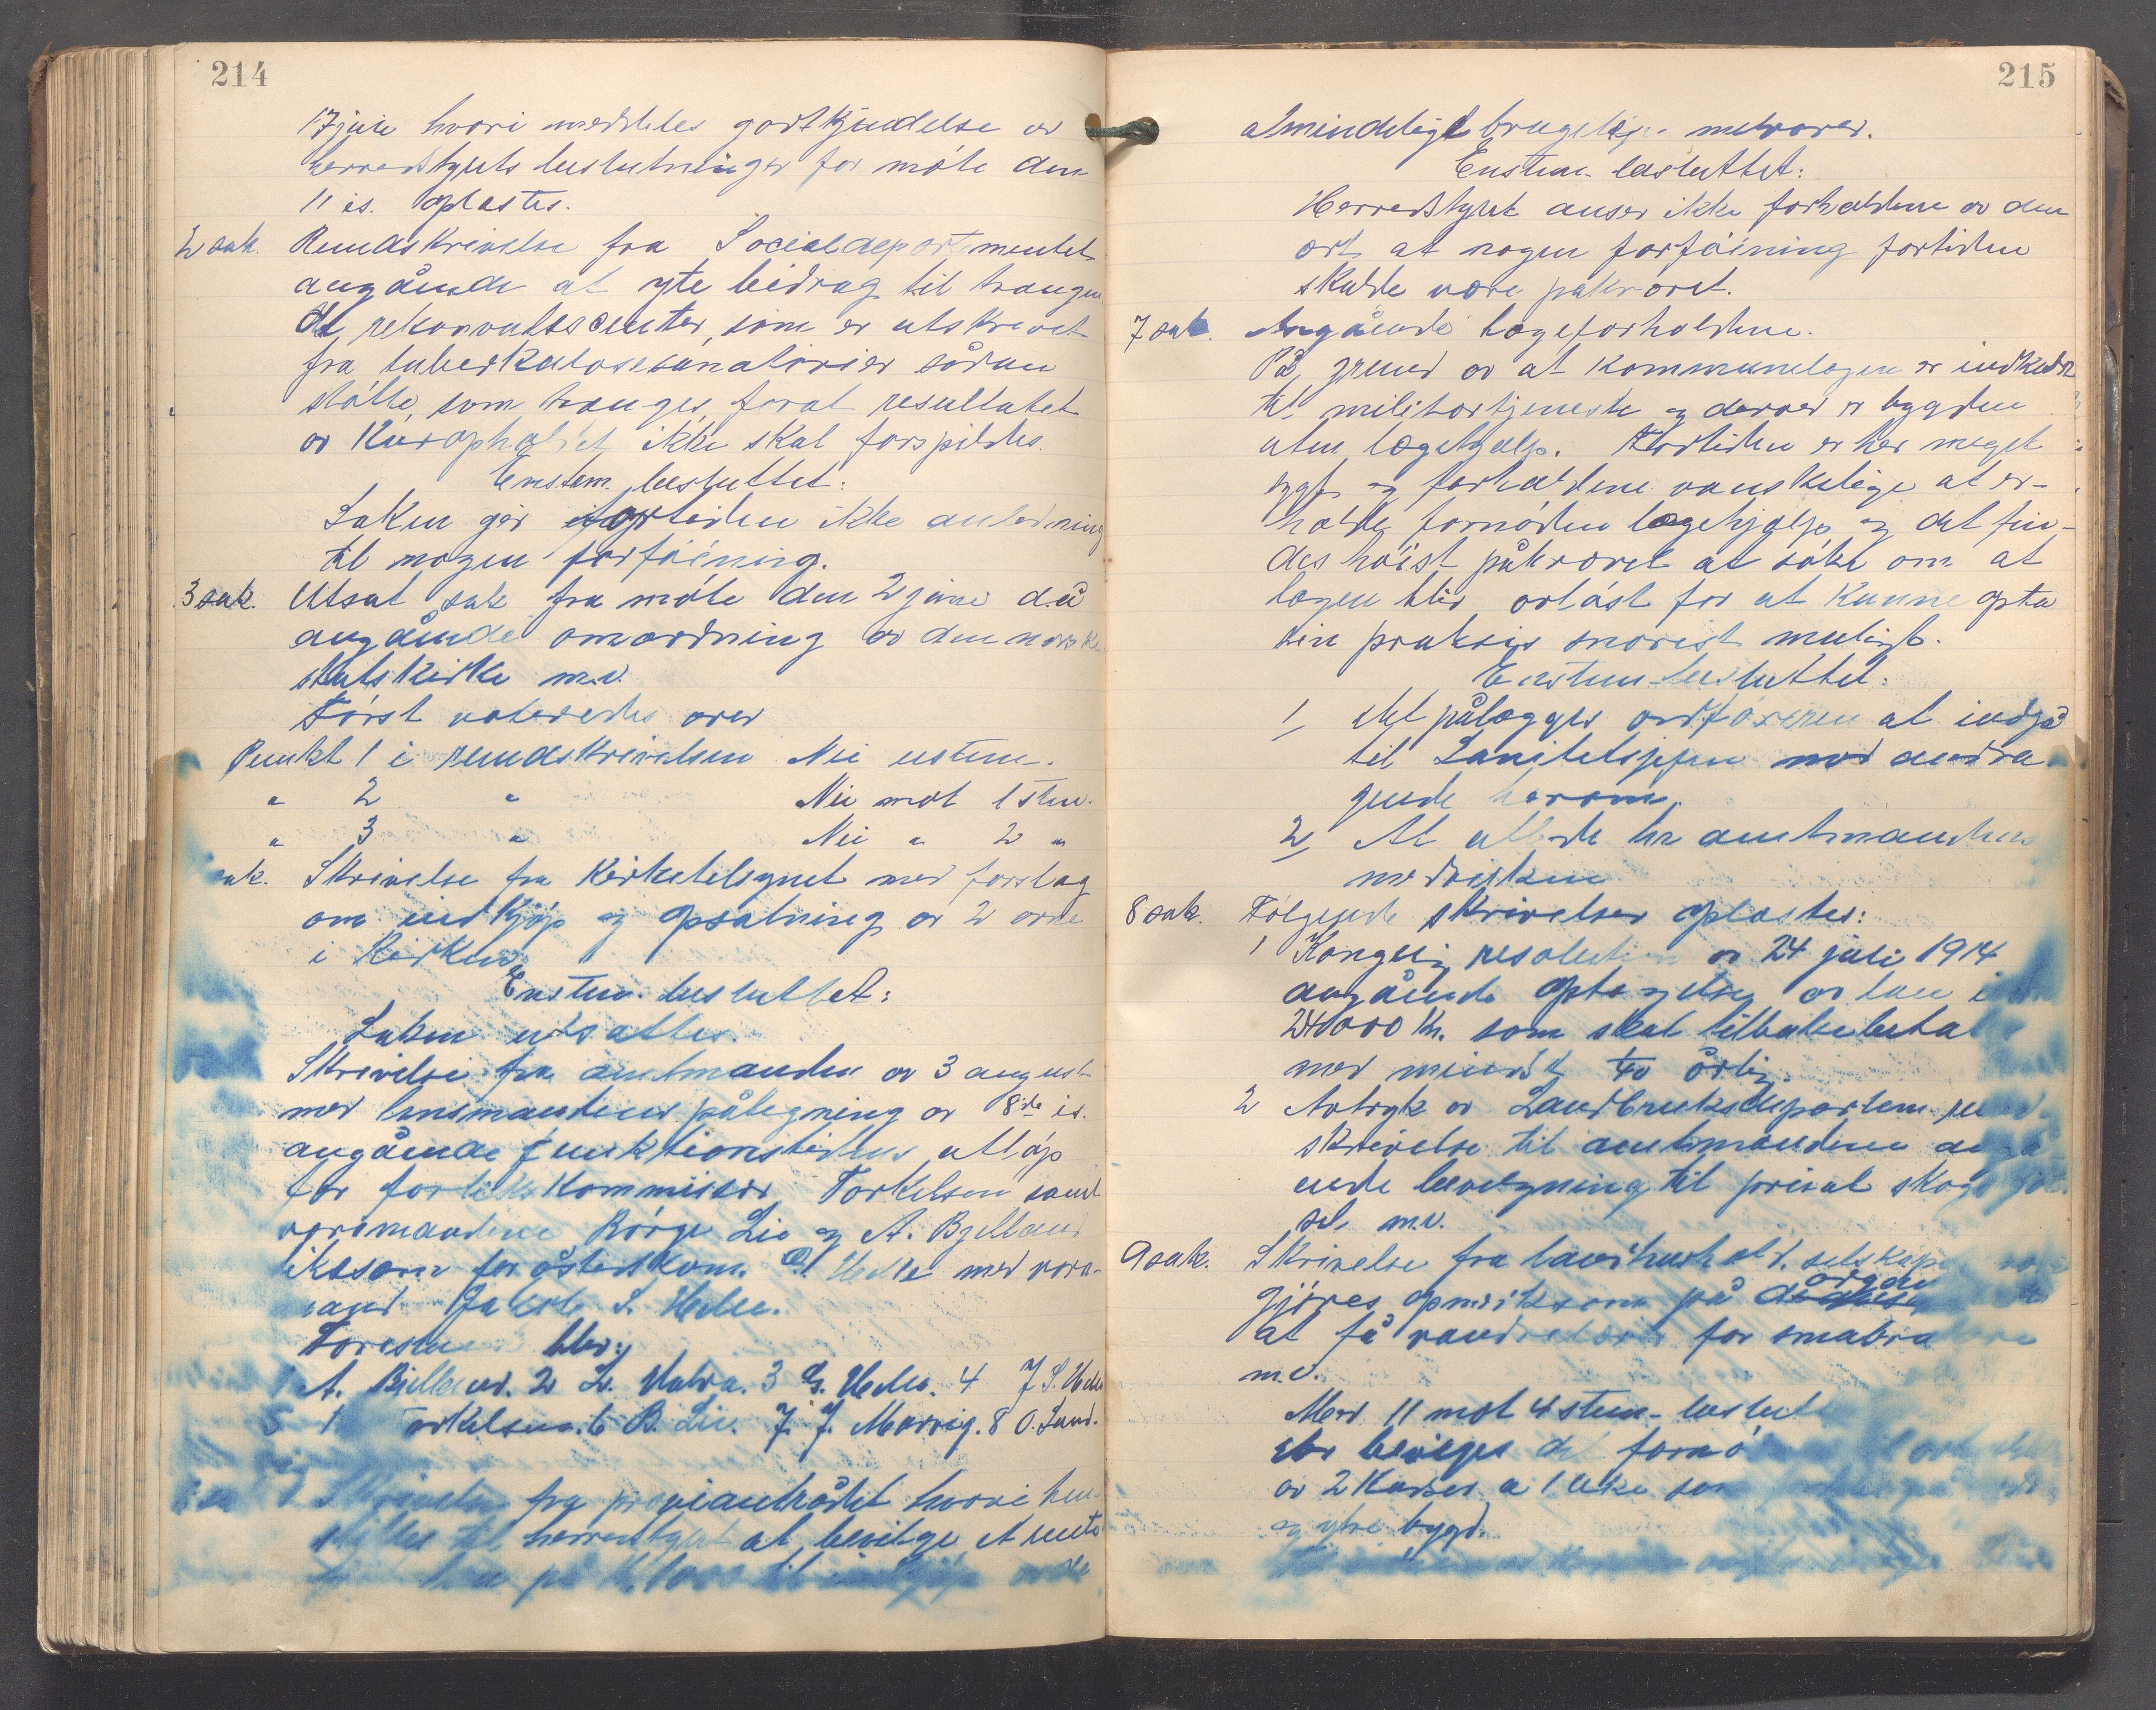 214
17 juli hvori meddeles godkjendelse av
herredstyrets beslutninger for møte den
11 ds. oplæstes.
2 sak. Rundskrivelse fra Socialdepartementet
angående at yte bidrag til trængen
de rekonvalescenter, som er utskrevet
fra tuberkulosesanatorier sådan
støtte, som trænges, forat resultatet
av Kuropholdet ikke skal forspildes.
Enstem. besluttet:
Saken gir fortiden ikke anledning
til nogen forføining.
3 sak. Utsat sak fra møte den 2 juni d.å
angående omordning av den norske
statskirke m.v.
Først voteredes over
Punkt 1 i rundskrivelsen Nei enstem.
" 2 " Nei mot 1 stem.
" 3 " Nei " 2 "
sak. Skrivelse fra Kirketilsynet med forslag
om indkjøp og opsætning av 2 ovne
i Kirken.
Enstem. besluttet:
Saken utsattes.
Skrivelse fra amtmanden av 3 august
med lensmandens påtegning av 8de ds.
angående funktionstidens utløp
for forlikskommissær Torkelsen samt
varamændene Børge Lie og A. Bjelland
likesom for åstedskom. Helle med vara-
mand Jakob S. Helle.
Foreslået blev:
1 A. Bjelland. 2 L. Hatra. 3 G. Helle. 4 J S. Helle
5 Torkelsen. 6 B. Lie. 7. J. Marvig. 8 O. Sand.
Skrivelse fra proviantrådet hvori hen-
stilles til herredstyret at bevilge et rente
frit lån på K. 1000 til indkjøp
215
almindeligt brugelige matvarer.
Enstem. besluttet:
Herredstyret anser ikke forholdene av den
art, at nogen forføining fortiden
skulde være påkrævet.
7 sak. Angående lægeforholdene.
På grund av at Kommunelægen er indkaldt
til militærtjeneste og derved er bygden
uten lægehjælp. Fortiden er her meget
sygt og forholdene vanskelige at er-
holde fornøden lægehjælp og det fin-
des høist påkrævet at søke om at
lægen blir avløst for at Kunne opta
sin praksis snarest mulig.
Enstem besluttet:
1, Det pålægges ordføreren at indgå
til Sanitetssjefen med andra
gende herom.
2, At utbede hr amtmandens
medvirken
8 sak. Følgende skrivelser oplæstes:
1 Kongelig resolution av 24 juli 1914
angående optagelse av lån
24000 Kr. som skal tilbakebetales
med mindst 1/40 årlig.
2 Avtryk av Landbruksdepartem. rund-
skrivelse til amtmandene angå
ende bevilgning til privat skog
sel m.v.
9 sak. Skrivelse fra landhushold. selskapet
gjøres opmerksom på adgang
at få vandrelærer for småbrukere
m.v.
Med 11 mot 4 stem. beslut
Der bevilges det fornødne
av 2 Kurser a 1 uke som
og ytre bygd.